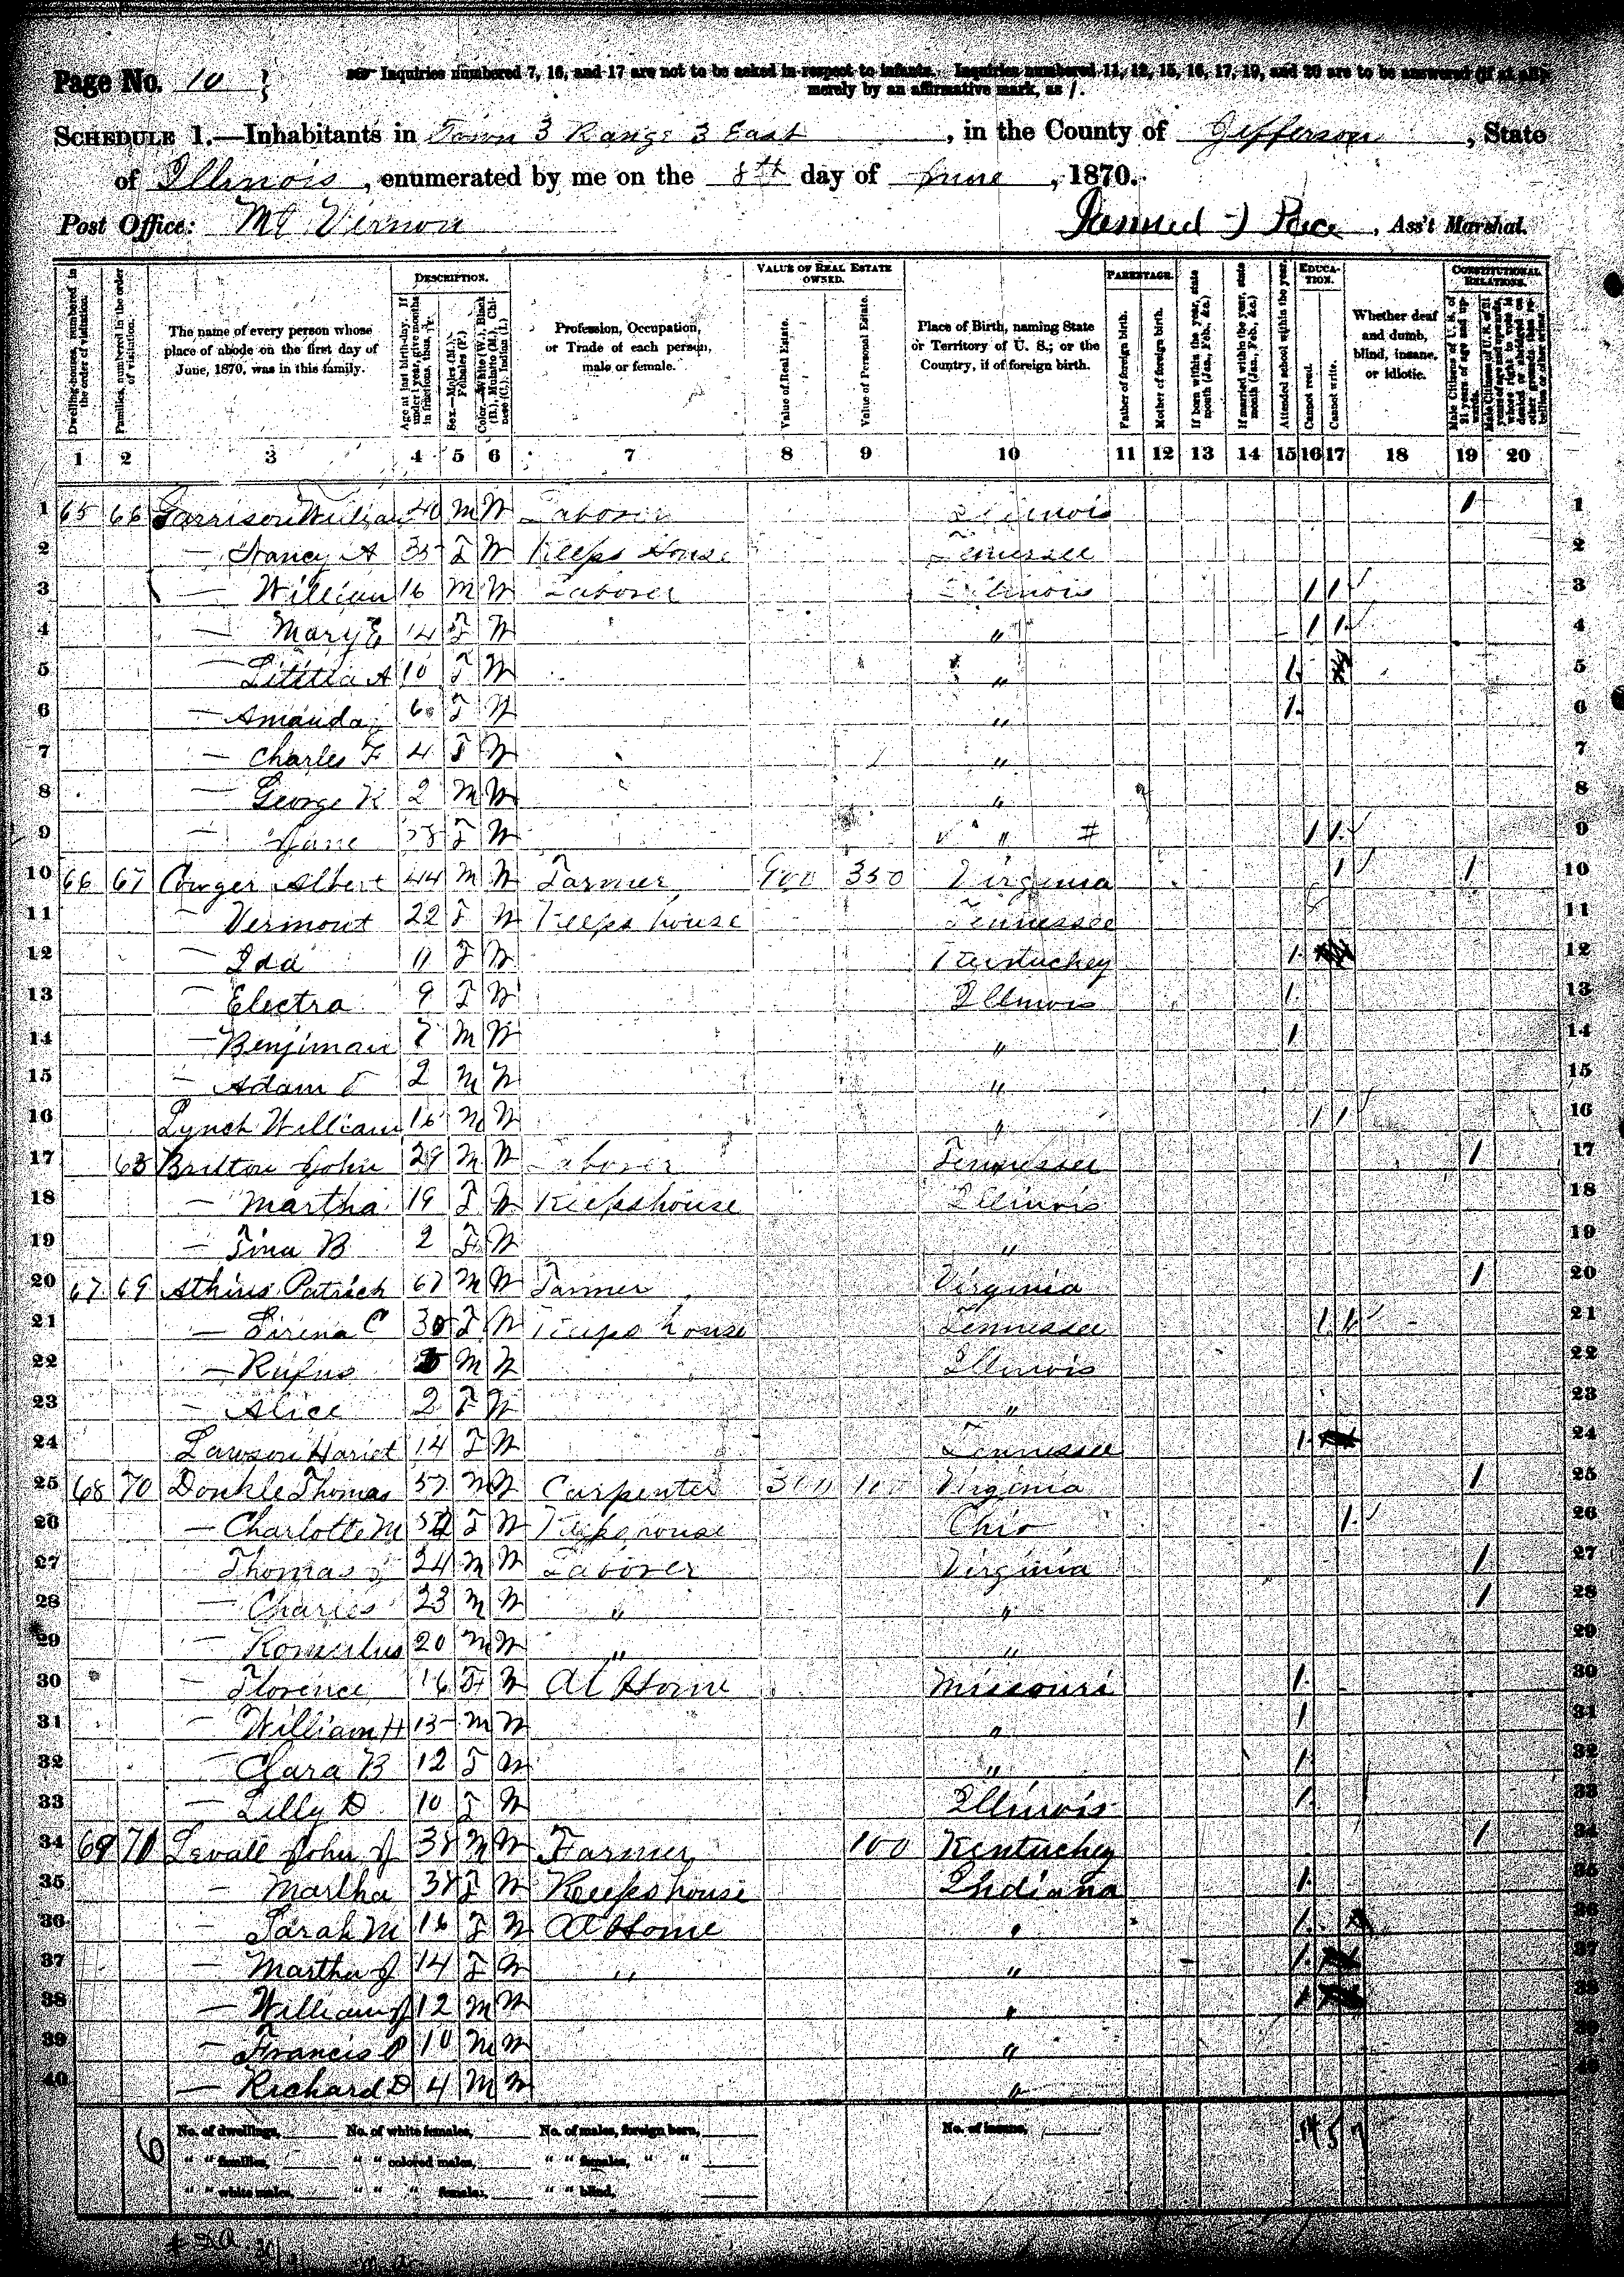 Page No. 10
Inquiries numbered 7, 16, and 17 are not to be asked in respect to infants. Inquiries numbered 11, 12, 15, 16, 17, 19, and 20 are to be answered (if at all)
merely by an affirmative mark, as /.
SCHEDULE 1.—Inhabitants in Town 3 Range 3 East, in the County of Jefferson, State
of Illinois, enumerated by me on the 8th day of June, 1870.
Post Office: Mt Vernon Pace, Ass't Marshal.
Dwelling-houses, numbered in the order of visitation.
Families, numbered in the order of visitation.
The name of every person whose place of abode on the first day of June, 1870, was in this family.
DESCRIPTION.
Age at last birth-day. If under 1 year, give months in fractions, thus,
Sex.—Males (M.), Females (F.)
Color.—White (W.), Black (B.), Mulatto (M.), Chinese (C.), Indian (I.)
Profession, Occupation, or Trade of each person, male or female.
VALUE OF REAL ESTATE OWNED.
Value of Real Estate.
Value of Personal Estate.
Place of Birth, naming State or Territory of U. S.; or the Country, if of foreign birth.
PARENTAGE.
Father of foreign birth.
Mother of foreign birth.
If born within the year, state month (Jan., Feb., &c.)
If married within the year, state month (Jan., Feb., &c.)
Attended school within the year.
EDUCATION.
Cannot read.
Cannot write.
Whether deaf and dumb, blind, insane, or idiotic.
CONSTITUTIONAL RELATIONS.
Male Citizens of U. S. of 21 years of age and upwards.
1 2 3 4 5 6 7 8 9 10 11 12 13 14 15 16 17 18 19 20
1 65 66 Garrison William 40 M W Laborer Illinois / 1
2 — Nancy A 35 F W Keeps House Tennessee 2
3 — William 16 M W Laborer Illinois / / 3
4 — Mary E 14 F W " / / 4
5 — Lititia A 10 F W " / 5
6 — Amanda 6 F W " / 6
7 — Charles F 4 F W " 7
8 — George K 2 M W " 8
9 — Jane F W " # / / 9
10 66 67 Conger Albert 44 M W Farmer 900 350 Virginia / / 10
11 — Vermont 22 F W Keeps house Tennessee 11
12 — Ida 11 F W Kentuckey / 12
13 — Electra 9 F W Illinois / 13
14 — Benjiman 7 M W " / 14
15 — Adam 2 M W " 15
16 Lynch William 16 M W " / / 16
17 68 Britton John 29 M W Laborer Tennessee / 17
18 — Martha 19 F W Keeps house Illinois 18
19 — Tina B 2 F W " 19
20 67 69 Athins Patrick 67 M W Farmer Virginia / 20
21 — Sirena C 30 F W Keeps house Tennessee / / 21
22 — Rufus M W Illinois 22
23 — Alice 2 F W " 23
24 Lawson Hariet 14 F W Tennessee / 24
25 68 70 Donkle Thomas 57 M W Carpenter 300 100 Virginia / 25
26 — Charlotte M F W Keeps house Ohio / 26
27 Thomas J 24 M W Laborer Virginia / 27
28 — Charles 23 M W " " / 28
29 — Romulus 20 M W " " 29
30 — Florence 16 F W At Home Missouri / 30
31 — William H 15 M W " / 31
32 — Clara B 12 F W " / 32
33 — Lilly D 10 F W Illinois / 33
34 69 71 Levall John J 38 M W Farmer 100 Kentuckey / 34
35 — Martha 38 F W Keeps house Indiana / 35
36 — Sarah M 16 F W At Home " / 36
37 — Martha J 14 F W " " / 37
38 — William J 12 M W " / 38
39 — Francis P 10 M W " 39
40 — Richard D 4 M W " 40
6
No. of dwellings, No. of white females, No. of males, foreign born, No. of insane,
" " families, " " colored males, " " females, " "
" " white males, " " " females, " " blind,